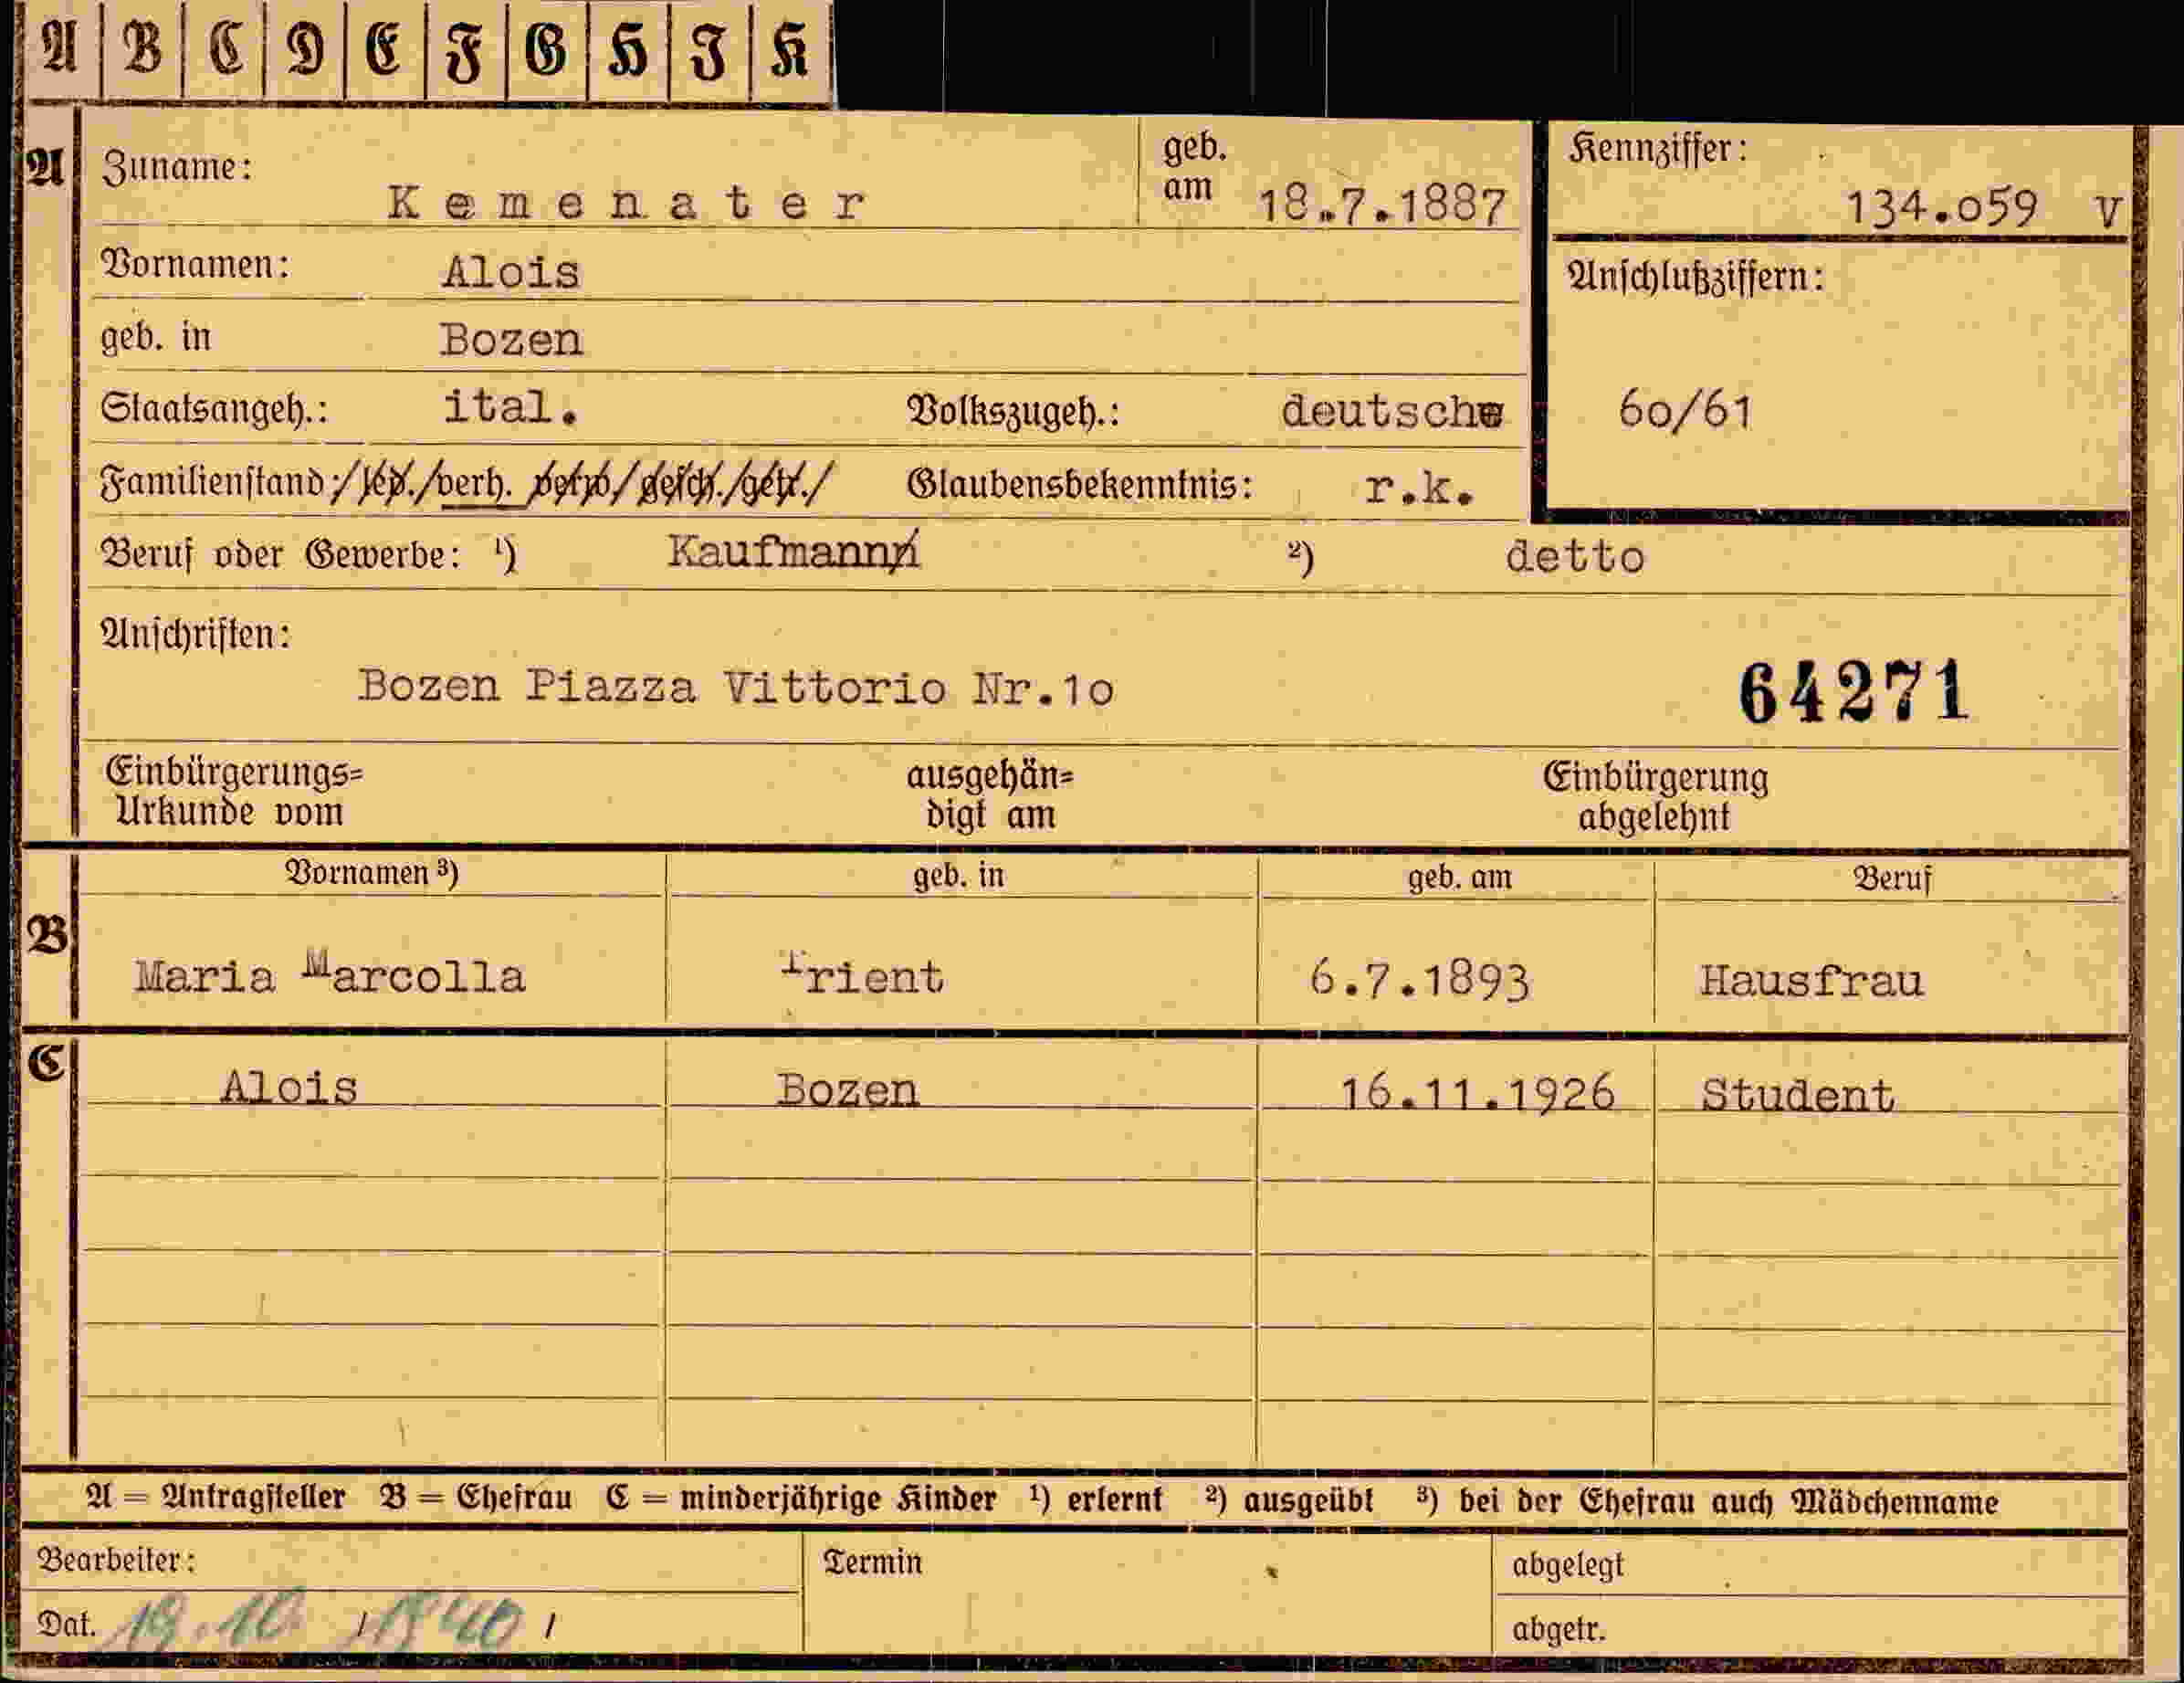 A B C D E F G H I K
A Zuname: Kemenater geb. am 18.7.1887 Kennziffer: 134.o59 V
Vornamen: Alois Anschlußziffern:
geb. in Bozen
Staatsangeh.: ital. Volkszugeh.: deutsche 60/61
Familienstand:/led./verh. verw./gesch./getr./ Glaubensbekenntnis: r.k.
Beruf oder Gewerbe: ¹) Kaufmann ²) detto
Anschriften:
Bozen Piazza Vittorio Nr.1o 64271
Einbürgerungs= ausgehän= Einbürgerung
Urkunde vom digt am abgelehnt
Vornamen ³) geb. in geb. am Beruf
B Maria Marcolla Trient 6.7.1893 Hausfrau
C Alois Bozen 16.11.1926 Student
A = Antragsteller B = Ehefrau C = minderjährige Kinder ¹) erlernt ²) ausgeübt ³) bei der Ehefrau auch Mädchenname
Bearbeiter: Termin abgelegt
Dat. 19.10. /1940/ abgetr.